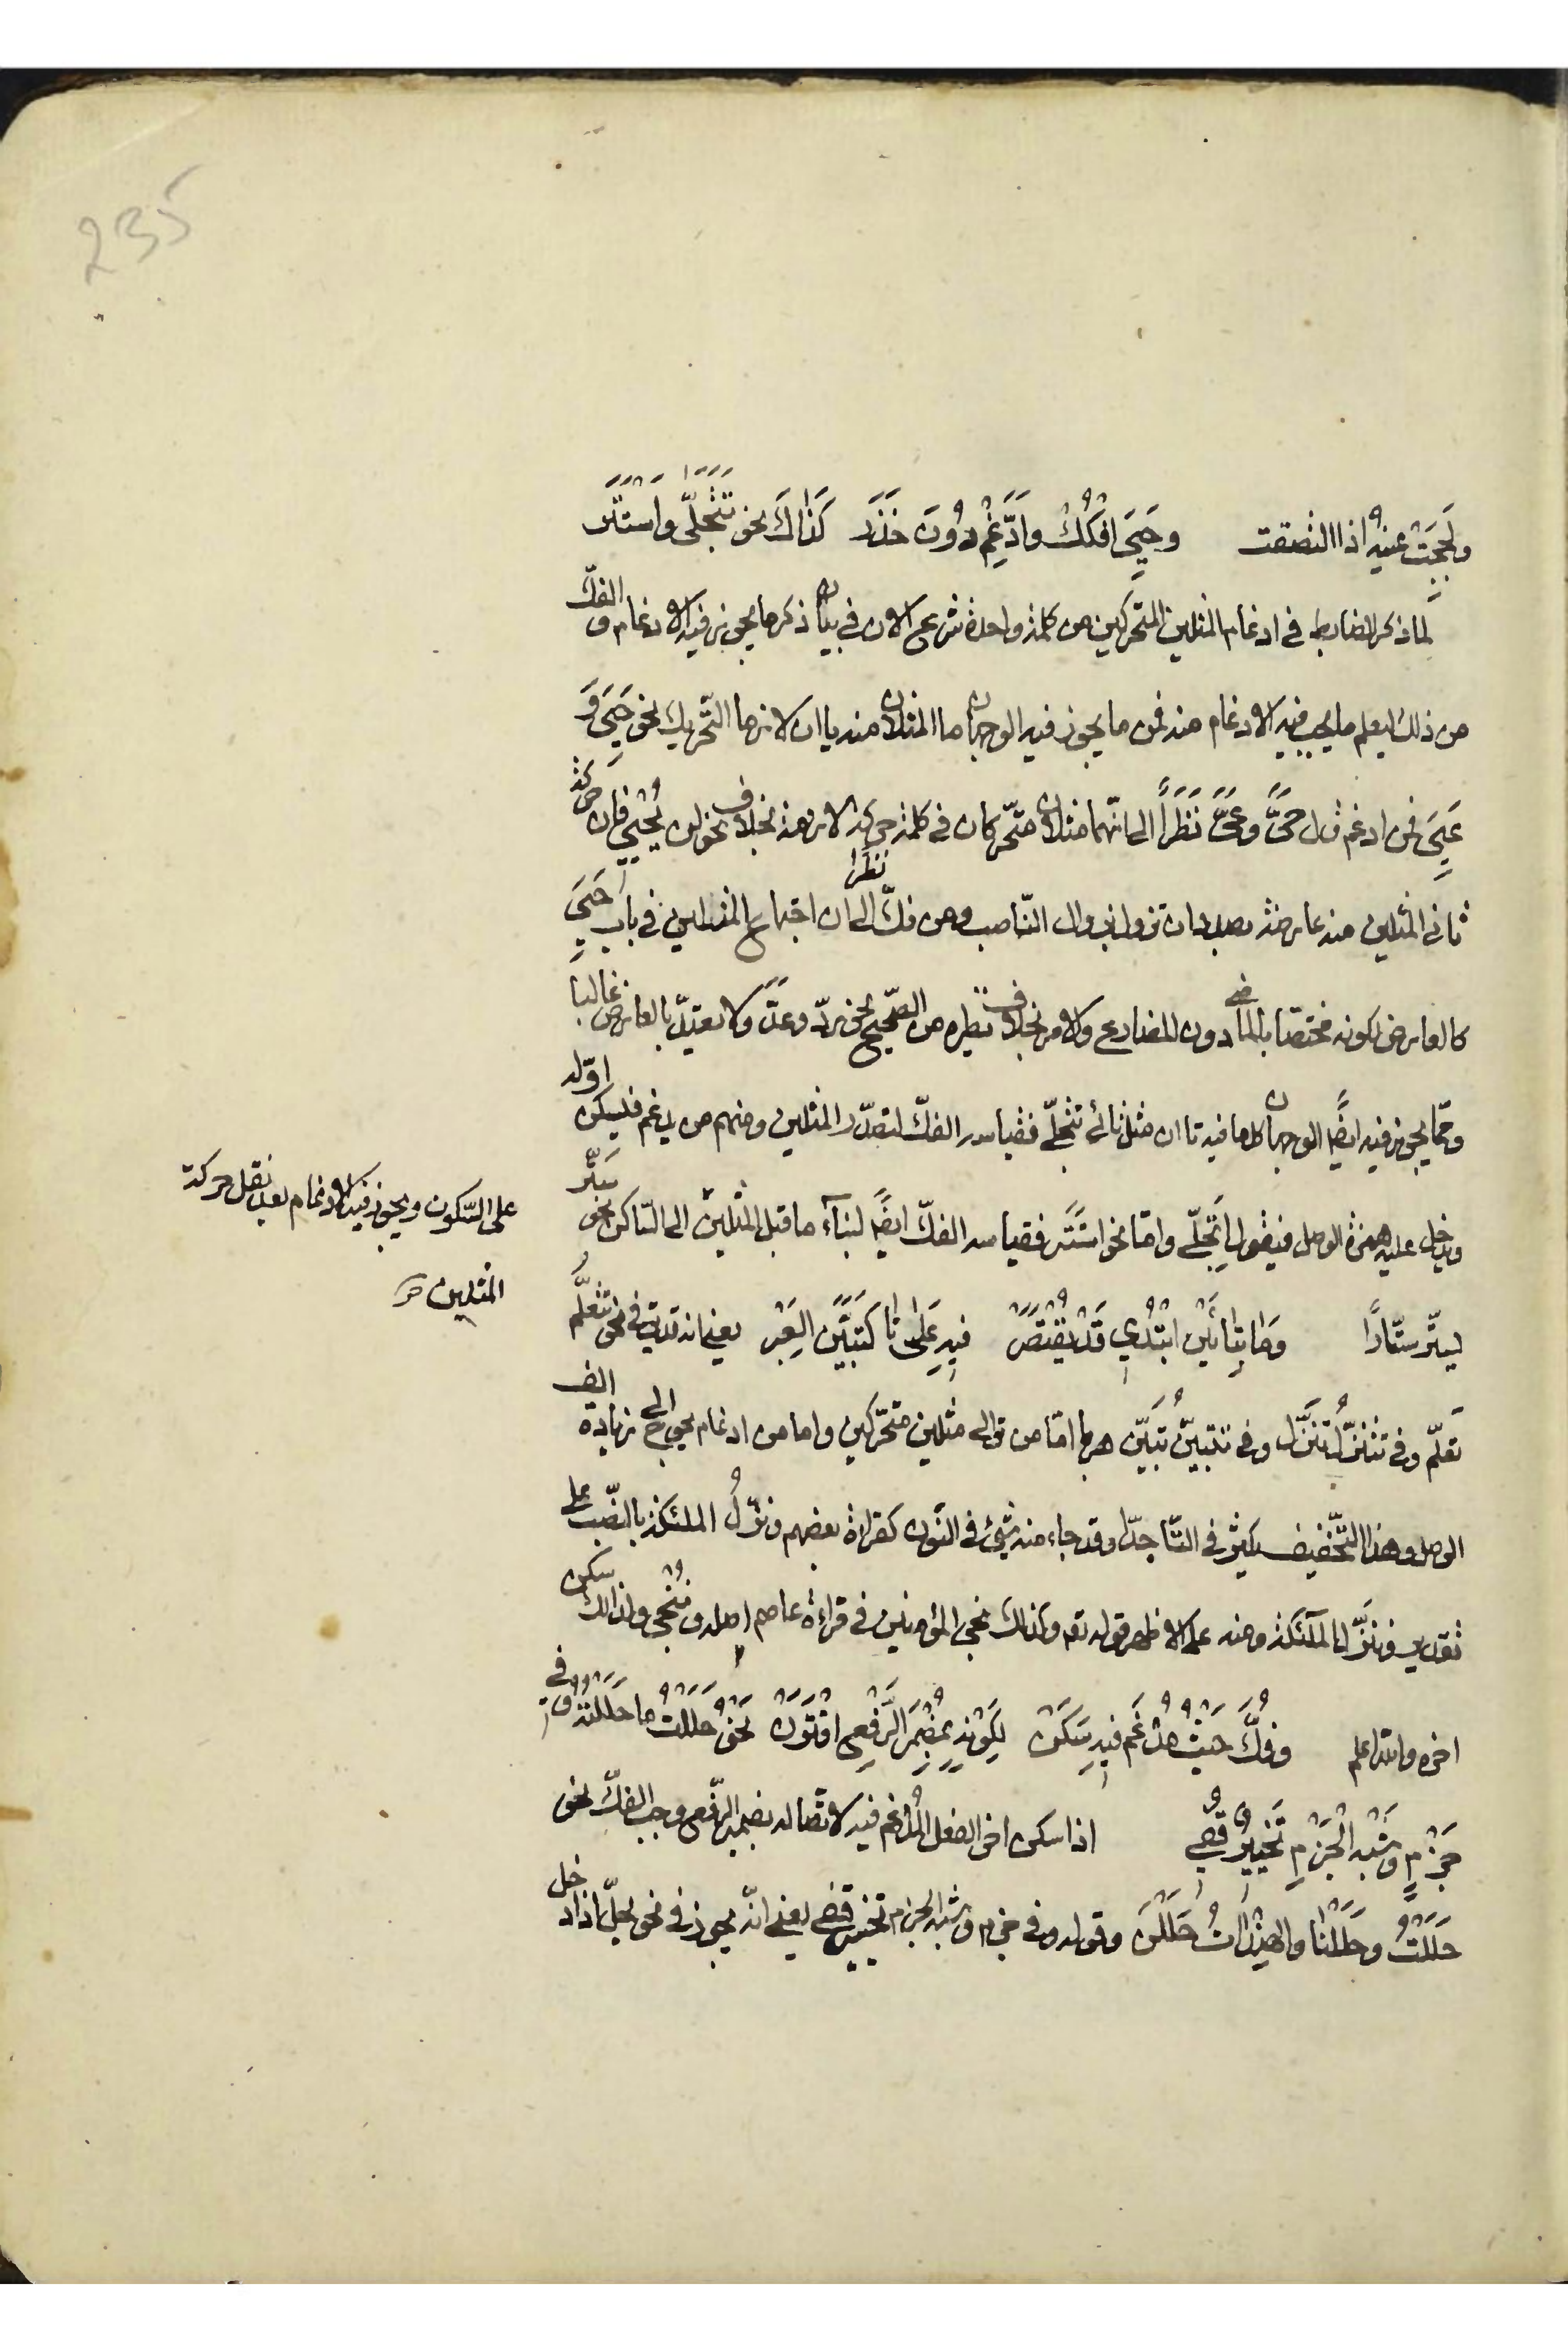 235
ولححت عينه اذا التصقت وَحَيِيَ افْكُكْ وادَّغِمْ دُونَ حَذَر كَذَاكَ نحو تَتَجَلَّى وَاسْتَتَر
لما ذكر الضابط فى ادغام المثلين المتحركين من كلمة واحدة شرع الان فى بيان ذكر ما يجوز فيه الادغام والفكّ
من ذلك ليعلم ما يجب فيه الادغام منه فمن ما يجوز فيه الوجهان ما المثلان منه ياان لازما التّحريك نحو حَيِيَ وَ
عَيِيَ فمن ادغم قال حَىَّ وعَىَّ نَظَراً الى انّهما مثلان متحّركان فى كلمة حركة لازمة بخلاف نحو لن يُحْيِيَ فان حركة
ثانى المثلين منه عارضة بصدد ان تزول بزوال النّاصب ومن فكّ نظرا الى ان اجتماع المثلين فى باب حَيِيَ
كالعارض لكونه مختصّا بالماضى دون المضارع والامر بخلاف نظيره من الصّحيح نحو ردّ وعدّ ولا يعتدّ بالعارض غالبا
وممّا يجوز فيه ايضًا الوجهان كل ما فيه تاان مثل ثانى تتجلّى فقياسه الفكّ لتصدّر المثلين ومنهم من يدغم فيسكن اوّله
ويدخل عليه همزة الوصل فيقول اتّجلّى وامّا نحو استَتَر فقياسه الفكّ ايضًا لبناء ما قبل المثلين الى السّاكن نحو سَتَّر
على السّكون ويجوز فيه الادغام بعد نقل حركة
المثلين
يستّر ستّارًا وَمَا بِتائَيْنِ ابْتُدِي قَدْ يُقْتَصَرْ فِيهِ عَلَى تا كَتَبَيَّنُ العِبَر يعنى انه قد يق فى نحو تتعلّم
تعلّم وفى تتنزّل تَنَزَّل وفى تتبيّن تبيّن هربا امّا من توالى مثلين متحّركين واما من ادغام يحوج الى زيادة الف
الوصل وهذا التّخفيف يكثر فى التّا جدّا وقد جاء منه شىء فى النّون كقراءة بعضهم ونزّلُ الملئكة بالنّصب على
تقدير وننزّل الملائكة ومنه على الاظهر قوله تع وكذلك نجى المؤمنين فى قراءة عاصم اصله ننجى ولذلك سكن
اخره والله اعلم وفُكَّ حَيْثُ مُدْغَم فِيهِ سَكَنْ لِكَوْنِهِ بِمُضْمَرِ الرَّفعِ اقْتَرَن نَحْوُ حَلَلْتُ ما حَلَلْتَهُ وَفِى
جَزْمٍ وَشِبْهِ الْجَزْمِ تَخْيِيرٌ قُفِي اذا سكن اخر الفعل المُدْغم فيه لاتّصاله بضمير الرّفع وجب الفكّ نحو
حَلَلْتُ وحَلَلْنا والهندات حَلَلْنَ وقوله وفى جزم وشبه الجزم تخيير قفى يعنى انّه يجوز فى نحو يحلّ اذا دخل